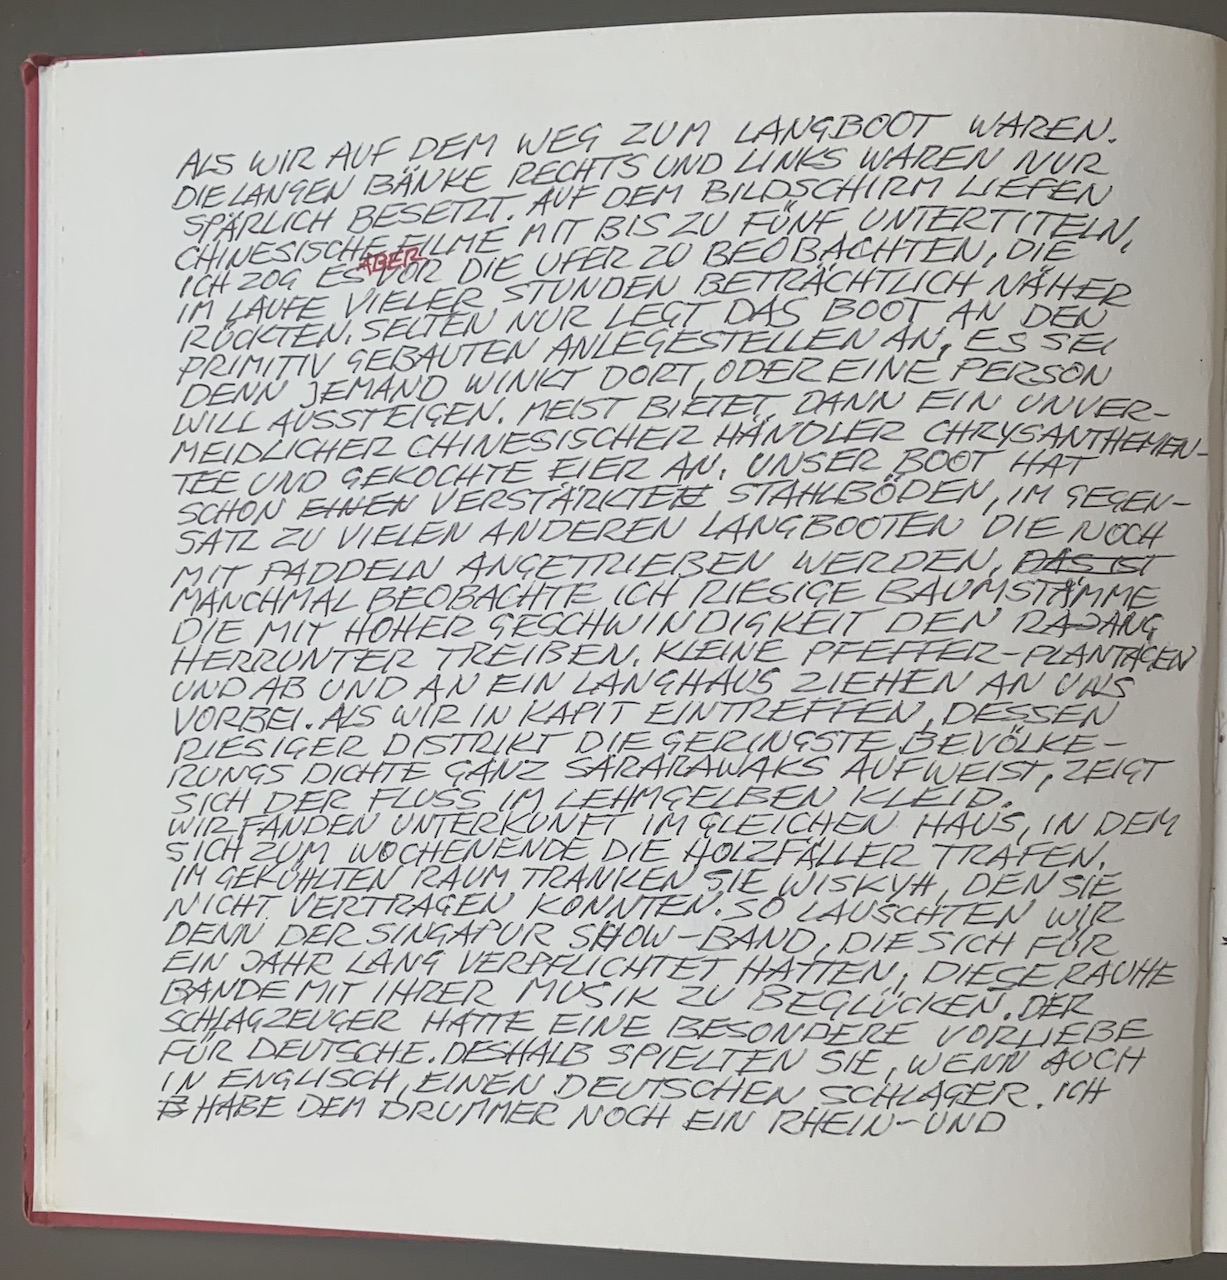 ALS WIR AUF DEM WEG ZUM LANGBOOT WAREN.
DIE LANGEN BÄNKE RECHTS UND LINKS WAREN NUR
SPÄRLICH BESETZT. AUF DEM BILDSCHIRM LIEFEN
CHINESISCHE FILME MIT BIS ZU FÜNF UNTERTITELN.
ABER
ICH ZOG ES VOR DIE UFER ZU BEOBACHTEN, DIE
IM LAUFE VIELER STUNDEN BETRÄCHTLICH NÄHER
RÜCKTEN. SELTEN NUR LEGT DAS BOOT AN DEN
PRIMITIV GEBAUTEN ANLEGESTELLEN AN, ES SEI
DENN JEMAND WINKT DORT, ODER EINE PERSON
WILL AUSSTEIGEN. MEIST BIETET DANN EIN UNVER-
MEIDLICHER CHINESISCHER HÄNDLER CHRYSANTHEMEN-
TEE UND GEKOCHTE EIER AN. UNSER BOOT HAT
SCHON EINEN VERSTÄRKTEN STAHLBÖDEN, IM GEGEN-
SATZ ZU VIELEN ANDEREN LANGBOOTEN DIE NOCH
MIT PADDELN ANGETRIEBEN WERDEN. DAS IST
MANCHMAL BEOBACHTE ICH RIESIGE BAUMSTÄMME
DIE MIT HOHER GESCHWINDIGKEIT DEN RAJANG
HERRUNTER TREIBEN. KLEINE PFEFFER-PLANTAGEN
UND AB UND AN EIN LANGHAUS ZIEHEN AN UNS
VORBEI. ALS WIR IN KAPIT EINTREFFEN, DESSEN
RIESIGER DISTRIKT DIE GERINGSTE BEVÖLKE-
RUNGS DICHTE GANZ SARARAWAKS AUFWEIST, ZEIGT
SICH DER FLUSS IM LEHMGELBEN KLEID.
WIR FANDEN UNTERKUNFT IM GLEICHEN HAUS, IN DEM
SICH ZUM WOCHENENDE DIE HOLZFÄLLER TRAFEN.
IM GEKÜHLTEN RAUM TRANKEN SIE WISKYH, DEN SIE
NICHT VERTRAGEN KONNTEN. SO LAUSCHTEN WIR
DENN DER SINGAPUR SHOW-BAND, DIE SICH FÜR
EIN JAHR LANG VERPFLICHTET HATTEN, DIESE RAUHE
BANDE MIT IHRER MUSIK ZU BEGLÜCKEN. DER
SCHLAGZEUGER HATTE EINE BESONDERE VORLIEBE
FÜR DEUTSCHE. DESHALB SPIELTEN SIE, WENN AUCH
IN ENGLISCH, EINEN DEUTSCHEN SCHLAGER. ICH
HABE DEM DRUMMER NOCH EIN RHEIN-UND